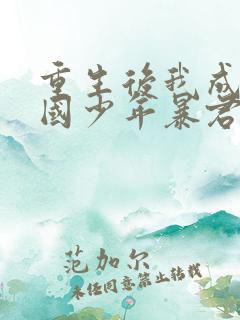 重生後我成
國少年暴君
范加尔
未经同意禁止转载